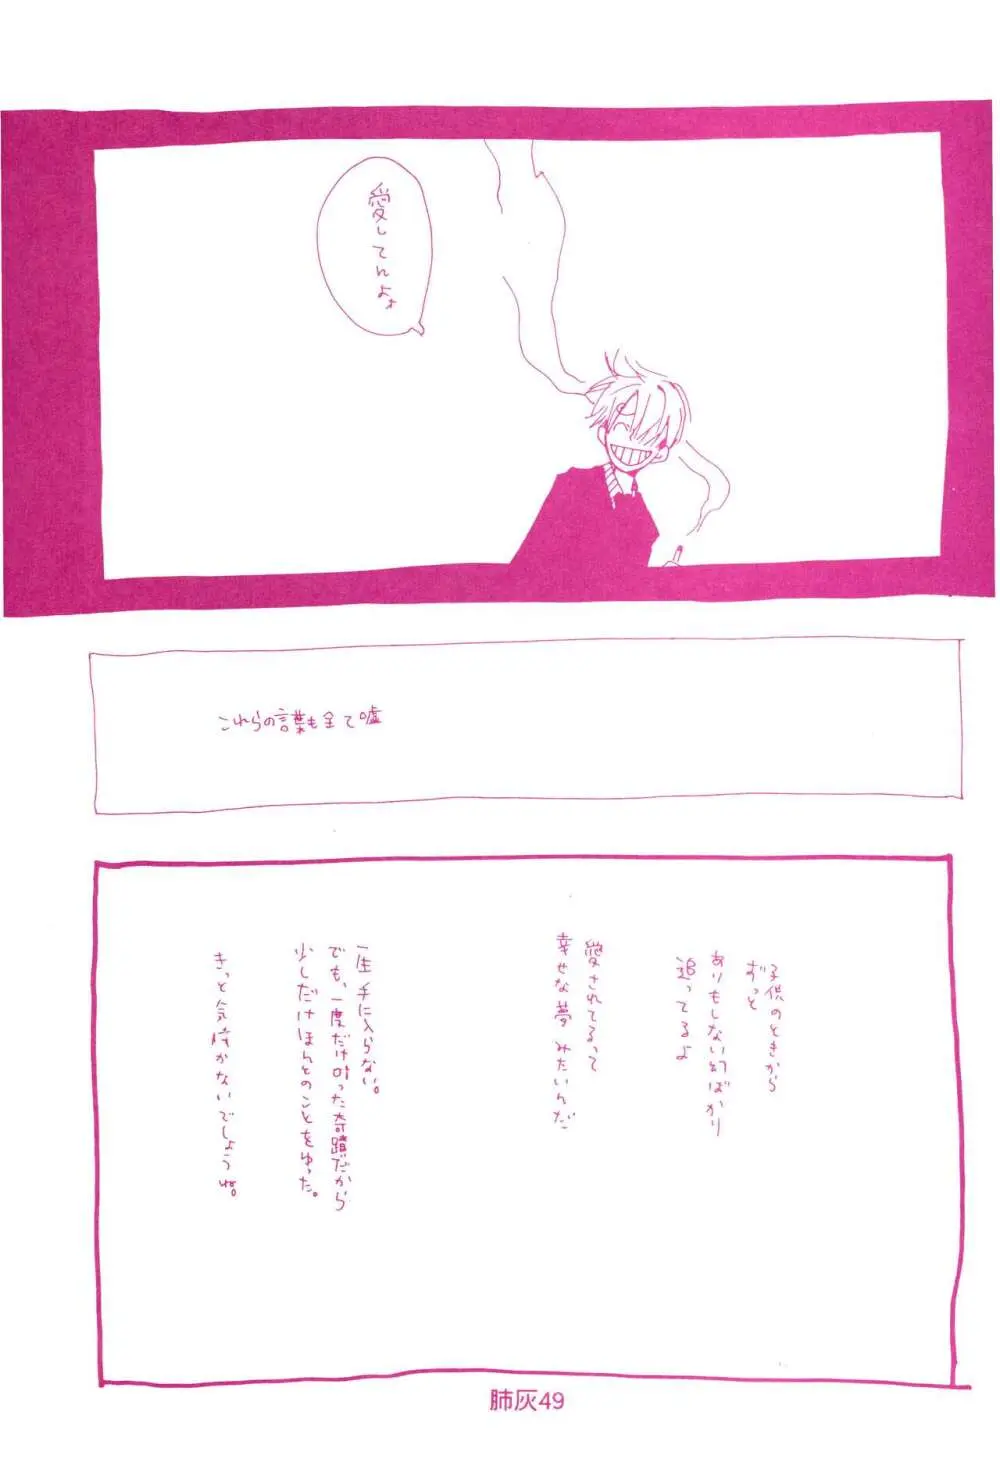 愛してんよ
これらの言葉も全て嘘
子供のときから
ずっと
ありもしない幻ばかり
追ってるよ
愛されてるって
幸せな夢みたいんだ
一生手に入らない。
でも、一度だけ叶った奇蹟だから
少しだけほんとのことをゆった。
きっと気時かないでしょうね。
肺灰49